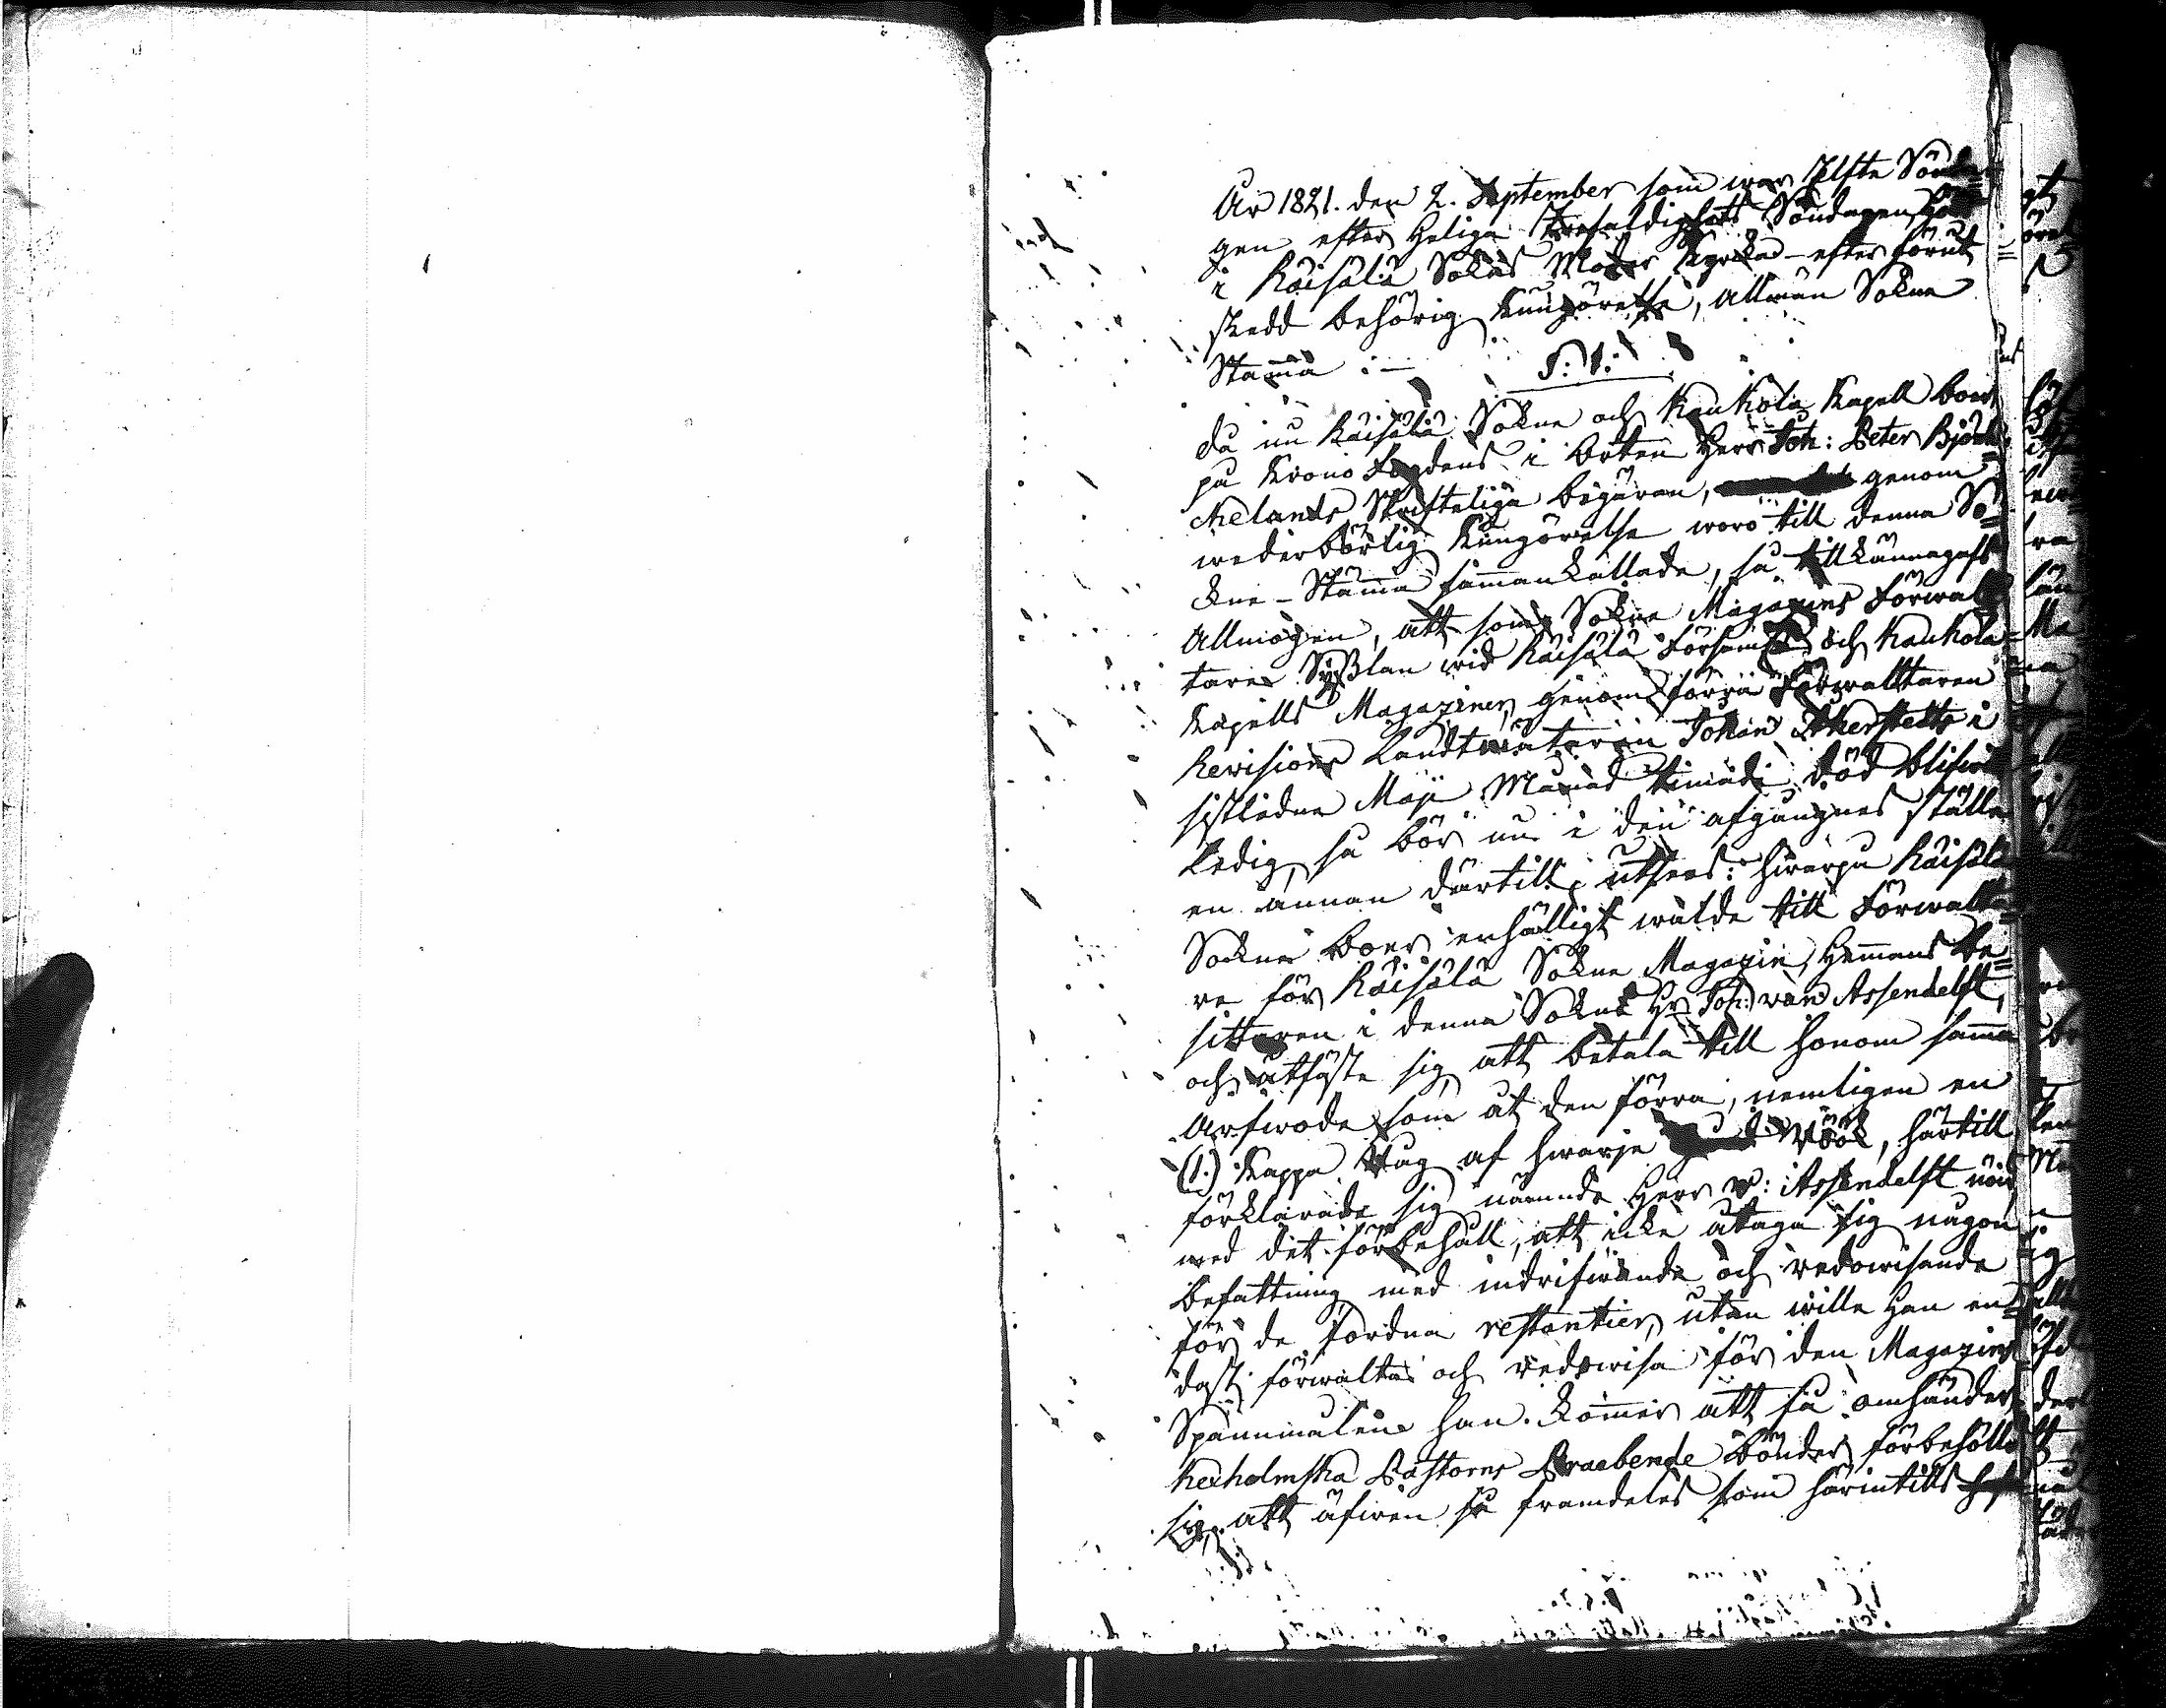 År 1821. den 2. September som war Elfte Sönda=
gen efter Heliga Trefaldighets Söndagen, hölts
i Räisälä Sokns Moder Kyrka – efter förut
skedd behörig Kungörelse, Allmän Sokne
Stam̄a :—
§: 1:
Då nu Räisälä Sokne och Kaukola Kapell boer
på Krono Fogdens i orten Herr Joh: Peter Björk=
chelands Skrifteliga begäran, genom
wederbörlig Kungörelse woro till denna So=
ckne-Stäm̄a sam̄ankallade, så tillkännagafs
Allmogen, att som Sokne Magazins Förwal=
tare Sysslan wid Räisälä Församl: och Kaukola
Kapells Magaziner, genom förra Förwalttaren
Revisions Landtmätaren Johan Åkerstedts i
sistledne Maji Månad timade död blifwit
Ledig, så bör nu i den afgångnes ställe
en annan därtill utses: hwarpå Räisälä
Sockne boer enhälligt walde till Förwalta=
re för Räisälä Sokne Magazin, Hem̄ans be=
sittaren i denna Sokne Hr Joh: van Assendelft,
och utfäste sig, att betala till honom sam̄a
Arfwode som åt den förra, nemligen en
(1.) Kappa Råg af hwarje Rök, härtill
förklarade sig nämnde Herr v: Assendelft nöjd
med det förbehåll, att icke åtaga sig någon
befattning med indrifwande och redowisande
för de fordna restantier, utan wille Han en=
dast förwalta och redowisa för den Magazins
Spannmålen han kom̄er att få omhänder,
Kexholmska Pastorns Praebende bönder förbehöllo
sig, att äfwen så framdeles som härintills